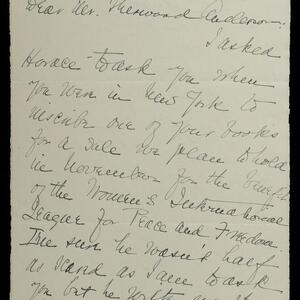 Dear Mr. Sherwood Anderson:
I asked
Horace to ask you when
you were in New York to
inscribe one of your books
for a sale we plan to hold
in November for the benefit
of the Women's International
League for Peace and Freedom
I'm sure he wasn't half
as scared as I am to ask
you but he